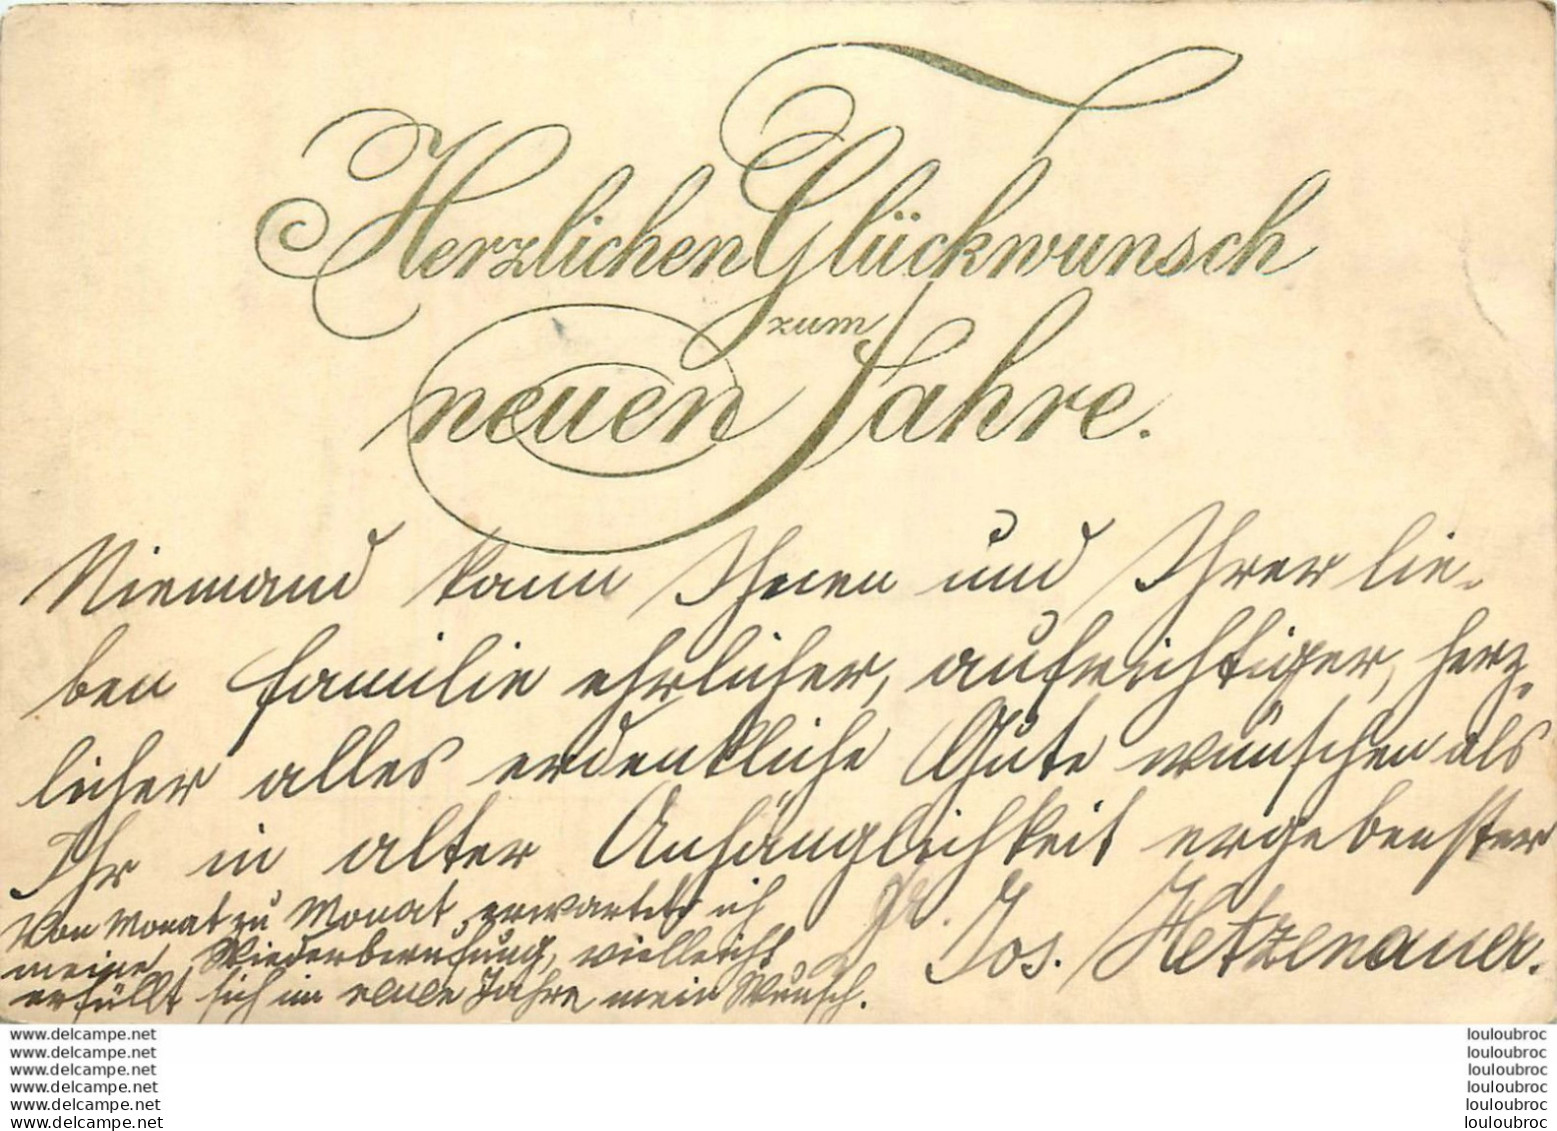 Herzlichen Glückwunsch
zum
neuen Jahre.
Niemand kann Ihnen und Ihrer lie-
ben Familie ehrlicher, aufrichtiger, herz-
licher alles erdenkliche Gute wünschen als
Ihr in alter Anhänglichkeit ergebenster
Jos. Hetzenauer.
Von Monat zu Monat erwartete ich
meine Wiederberufung, vielleicht
erfüllt sich im neuen Jahre mein Wunsch.
www.delcampe.net
www.delcampe.net
www.delcampe.net
www.delcampe.net
www.delcampe.net
www.delcampe.net
louloubroc
louloubroc
louloubroc
louloubroc
louloubroc
louloubroc